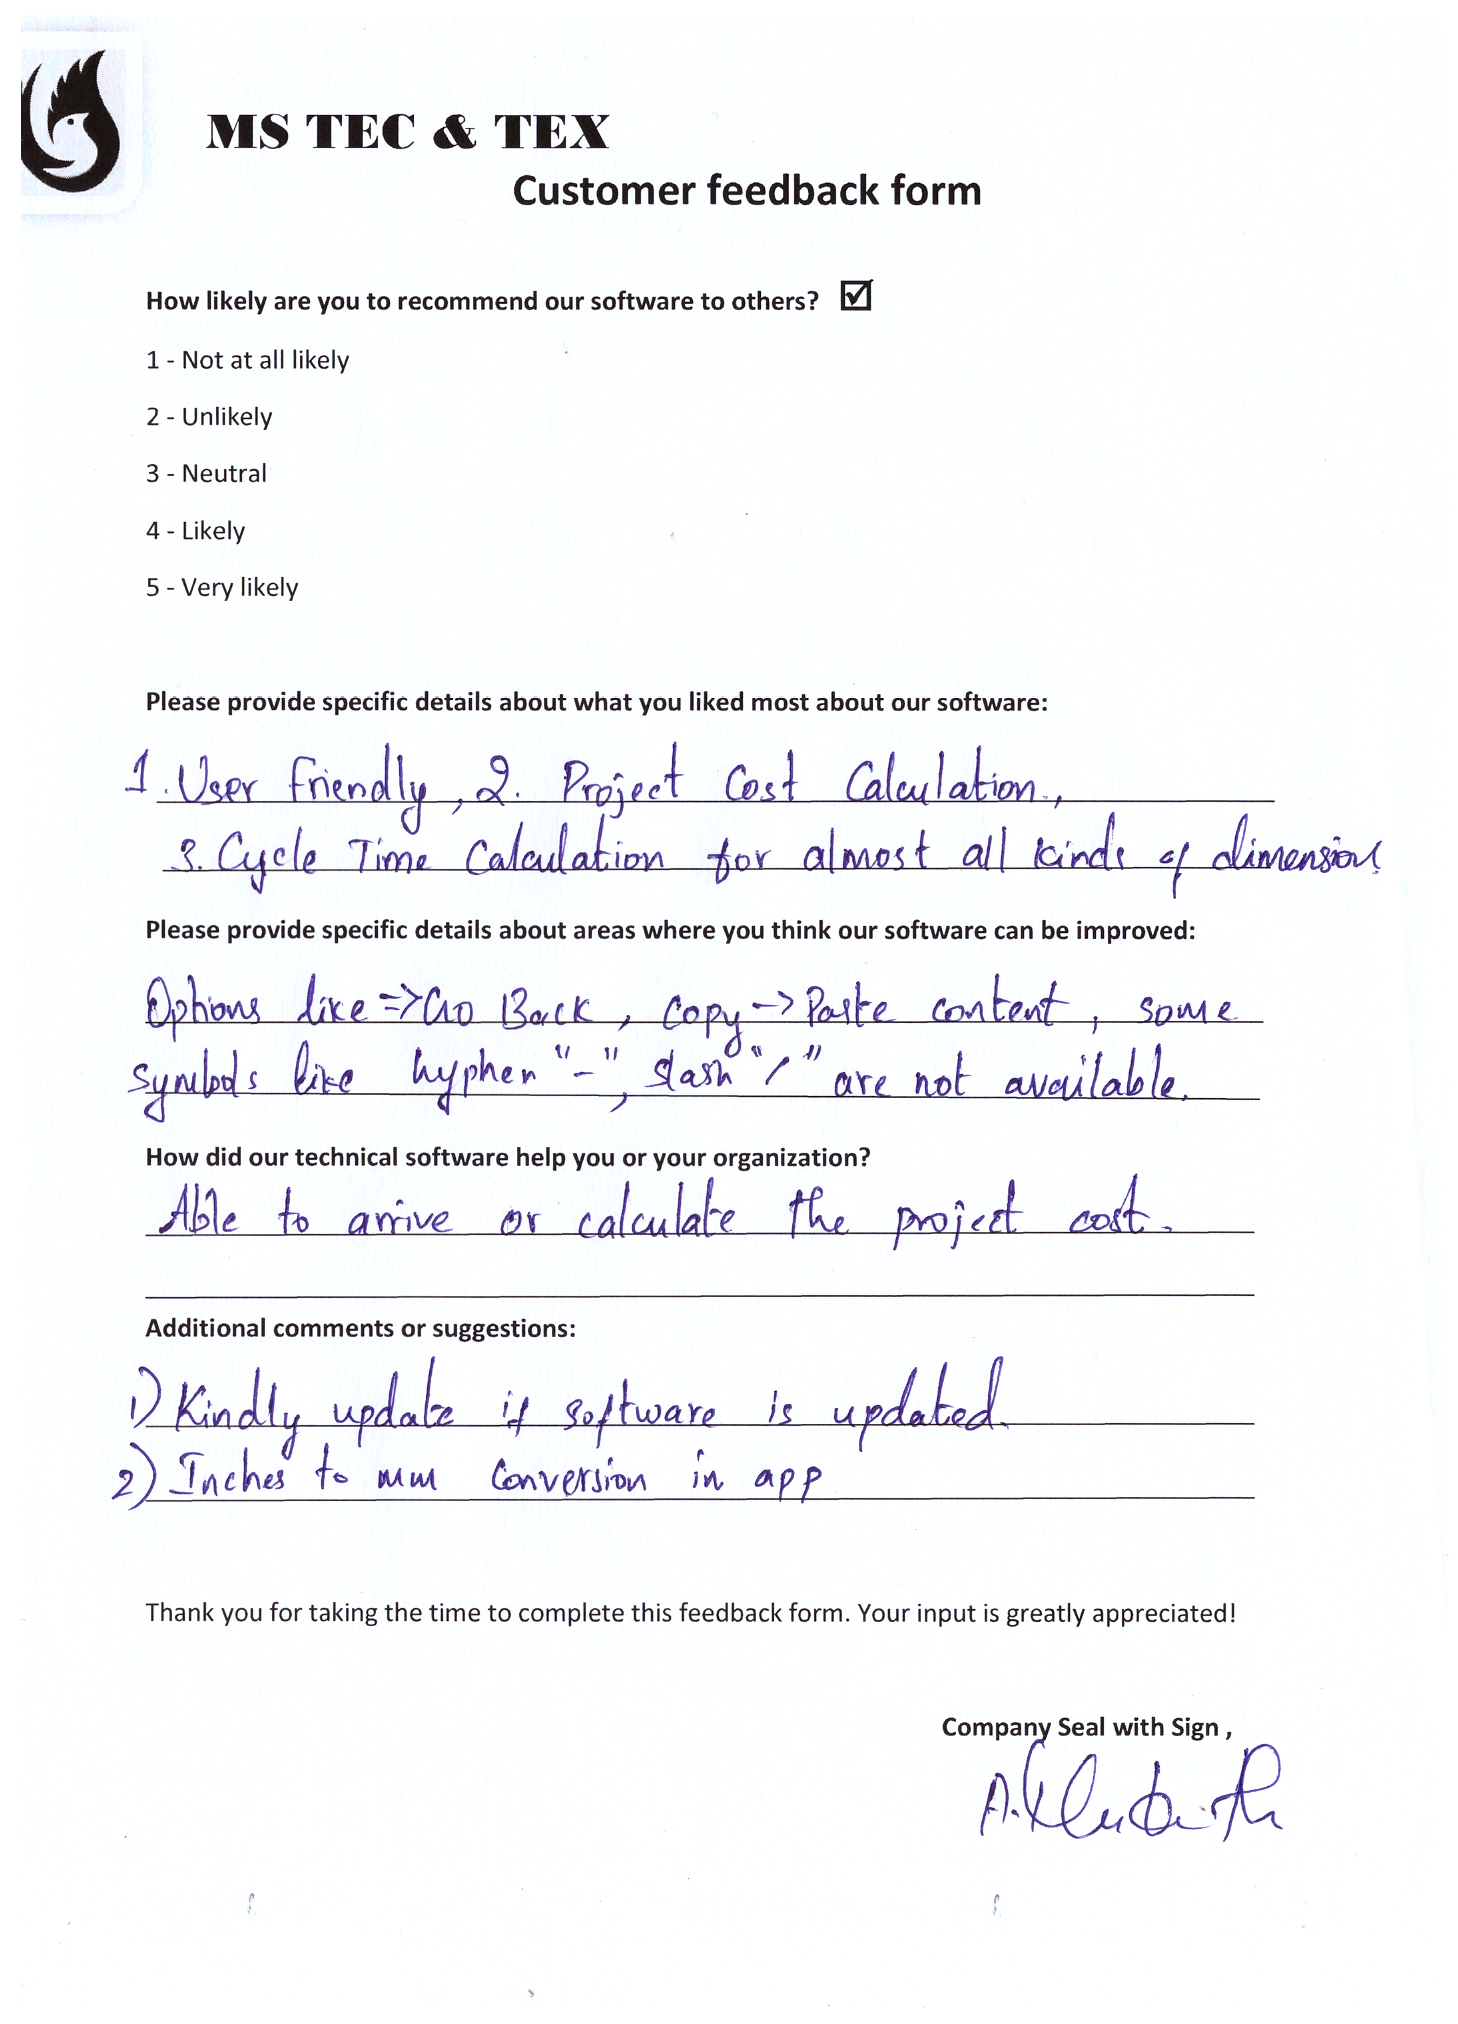 MS TEC & TEX
Customer feedback form
How likely are you to recommend our software to others? ☑
1 - Not at all likely
2 - Unlikely
3 - Neutral
4 - Likely
5 - Very likely
Please provide specific details about what you liked most about our software:
1. User Friendly, 2. Project Cost Calculation.,
3. Cycle Time Calculation for almost all kinds of dimension.
Please provide specific details about areas where you think our software can be improved:
Options like => Go Back, Copy -> Paste content, some
symbols like hyphen "-", slash "/" are not available.
How did our technical software help you or your organization?
Able to arrive or calculate the project cost.
Additional comments or suggestions:
1) Kindly update if software is updated.
2) Inches to mm Conversion in app
Thank you for taking the time to complete this feedback form. Your input is greatly appreciated!
Company Seal with Sign ,